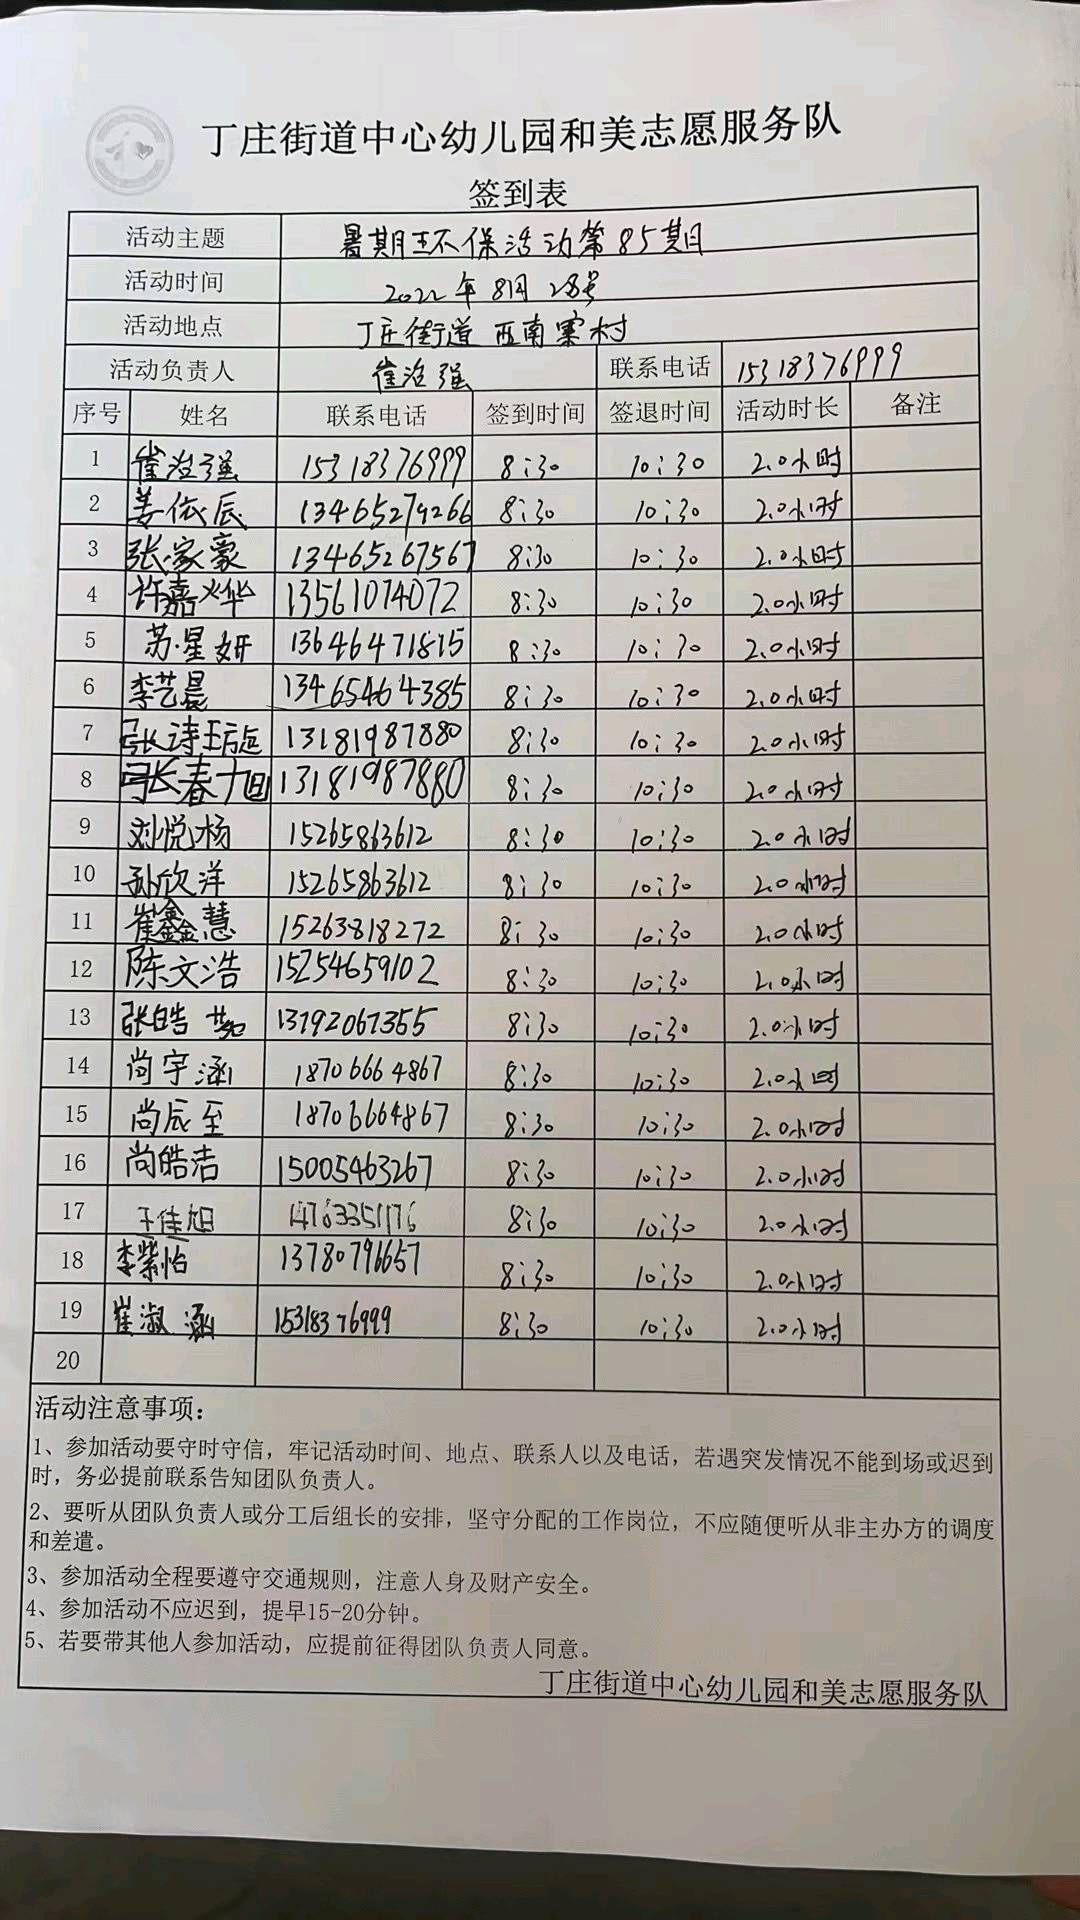 丁庄街道中心幼儿园和美志愿服务队
签到表
活动主题 暑期环保活动第85期
活动时间 2022年8月28号
活动地点 丁庄街道西南寨村
活动负责人 崔治强 联系电话 15318376999
序号 姓名 联系电话 签到时间 签退时间 活动时长 备注
1 崔治强 15318376999 8:30 10:30 2.0小时
2 姜依辰 13465279266 8:30 10:30 2.0小时
3 张家豪 13465267567 8:30 10:30 2.0小时
4 许嘉烨 13561074072 8:30 10:30 2.0小时
5 苏星妍 13646471815 8:30 10:30 2.0小时
6 李艺晨 13465464385 8:30 10:30 2.0小时
7 张诗璇 13181987880 8:30 10:30 2.0小时
8 张春旭 13181987880 8:30 10:30 2.0小时
9 刘悦杨 15265863612 8:30 10:30 2.0小时
10 孙欣洋 15265863612 8:30 10:30 2.0小时
11 崔鑫慧 15263818272 8:30 10:30 2.0小时
12 陈文浩 15254659102 8:30 10:30 2.0小时
13 张皓 13792067355 8:30 10:30 2.0小时
14 尚宇涵 18706664867 8:30 10:30 2.0小时
15 尚辰至 18706664867 8:30 10:30 2.0小时
16 尚皓洁 15005463267 8:30 10:30 2.0小时
17 王佳旭 14763351176 8:30 10:30 2.0小时
18 李紫怡 13780796657 8:30 10:30 2.0小时
19 崔淑涵 15318376999 8:30 10:30 2.0小时
20
活动注意事项：
1、参加活动要守时守信，牢记活动时间、地点、联系人以及电话，若遇突发情况不能到场或迟到
时，务必提前联系告知团队负责人。
2、要听从团队负责人或分工后组长的安排，坚守分配的工作岗位，不应随便听从非主办方的调度
和差遣。
3、参加活动全程要遵守交通规则，注意人身及财产安全。
4、参加活动不应迟到，提早15-20分钟。
5、若要带其他人参加活动，应提前征得团队负责人同意。
丁庄街道中心幼儿园和美志愿服务队